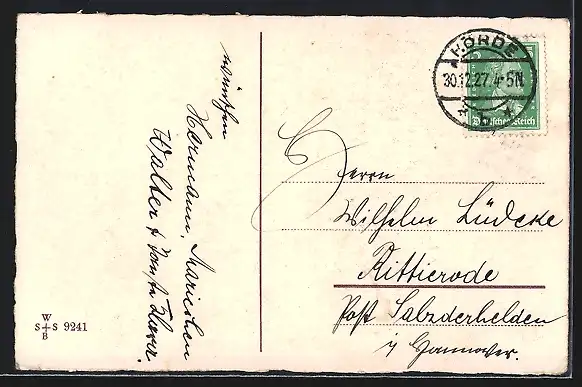 wünschen
Hermann, Mariechen
Walter &
HÖRDE
30.12.27. 4-5N
Deutsches Reich
Herrn
Wilhelm Lüdeke
Rittierode
Post Salzderhelden
i/ Hannover.
W
S S 9241
B